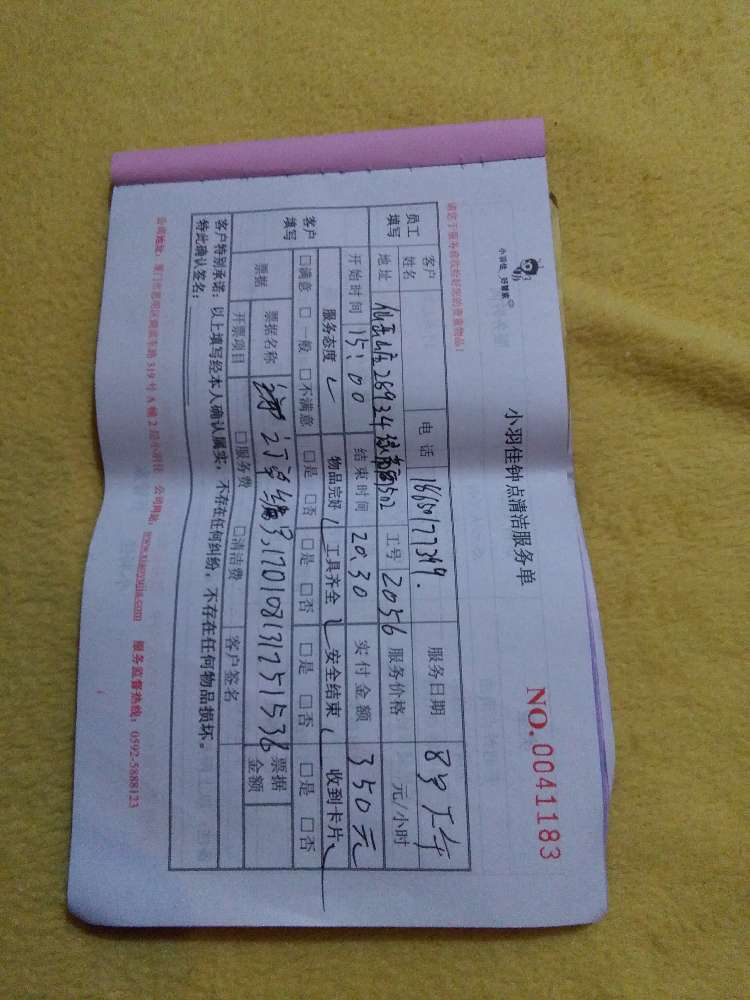 小羽佳 好管家
小羽佳钟点清洁服务单
NO.0041183
请您于服务前收检好您的贵重物品!
员工填写
客户姓名
电话 18650177349.
服务日期 8号下午
地址 仙岳山庄26934 502
工号 2056
服务价格 元/小时
开始时间 15:00
结束时间 20.30
实付金额 350元
客户填写
服务态度 物品完好 工具齐全 安全结束 收到卡片
□满意 □一般 □不满意 □是 □否 □是 □否 □是 □否 □是 □否
票据
票据名称 订单编号,170108131251536
票据金额
开票项目 □服务费 □清洁费 客户签名
客户特别承诺:以上填写经本人确认属实,不存在任何纠纷,不存在任何物品损坏。
特此确认签名:
公司地址:厦门市思明区 319号A幢2层小羽佳 公司网站:www.xiaoyujia.com 服务监督热线:0592-5888123